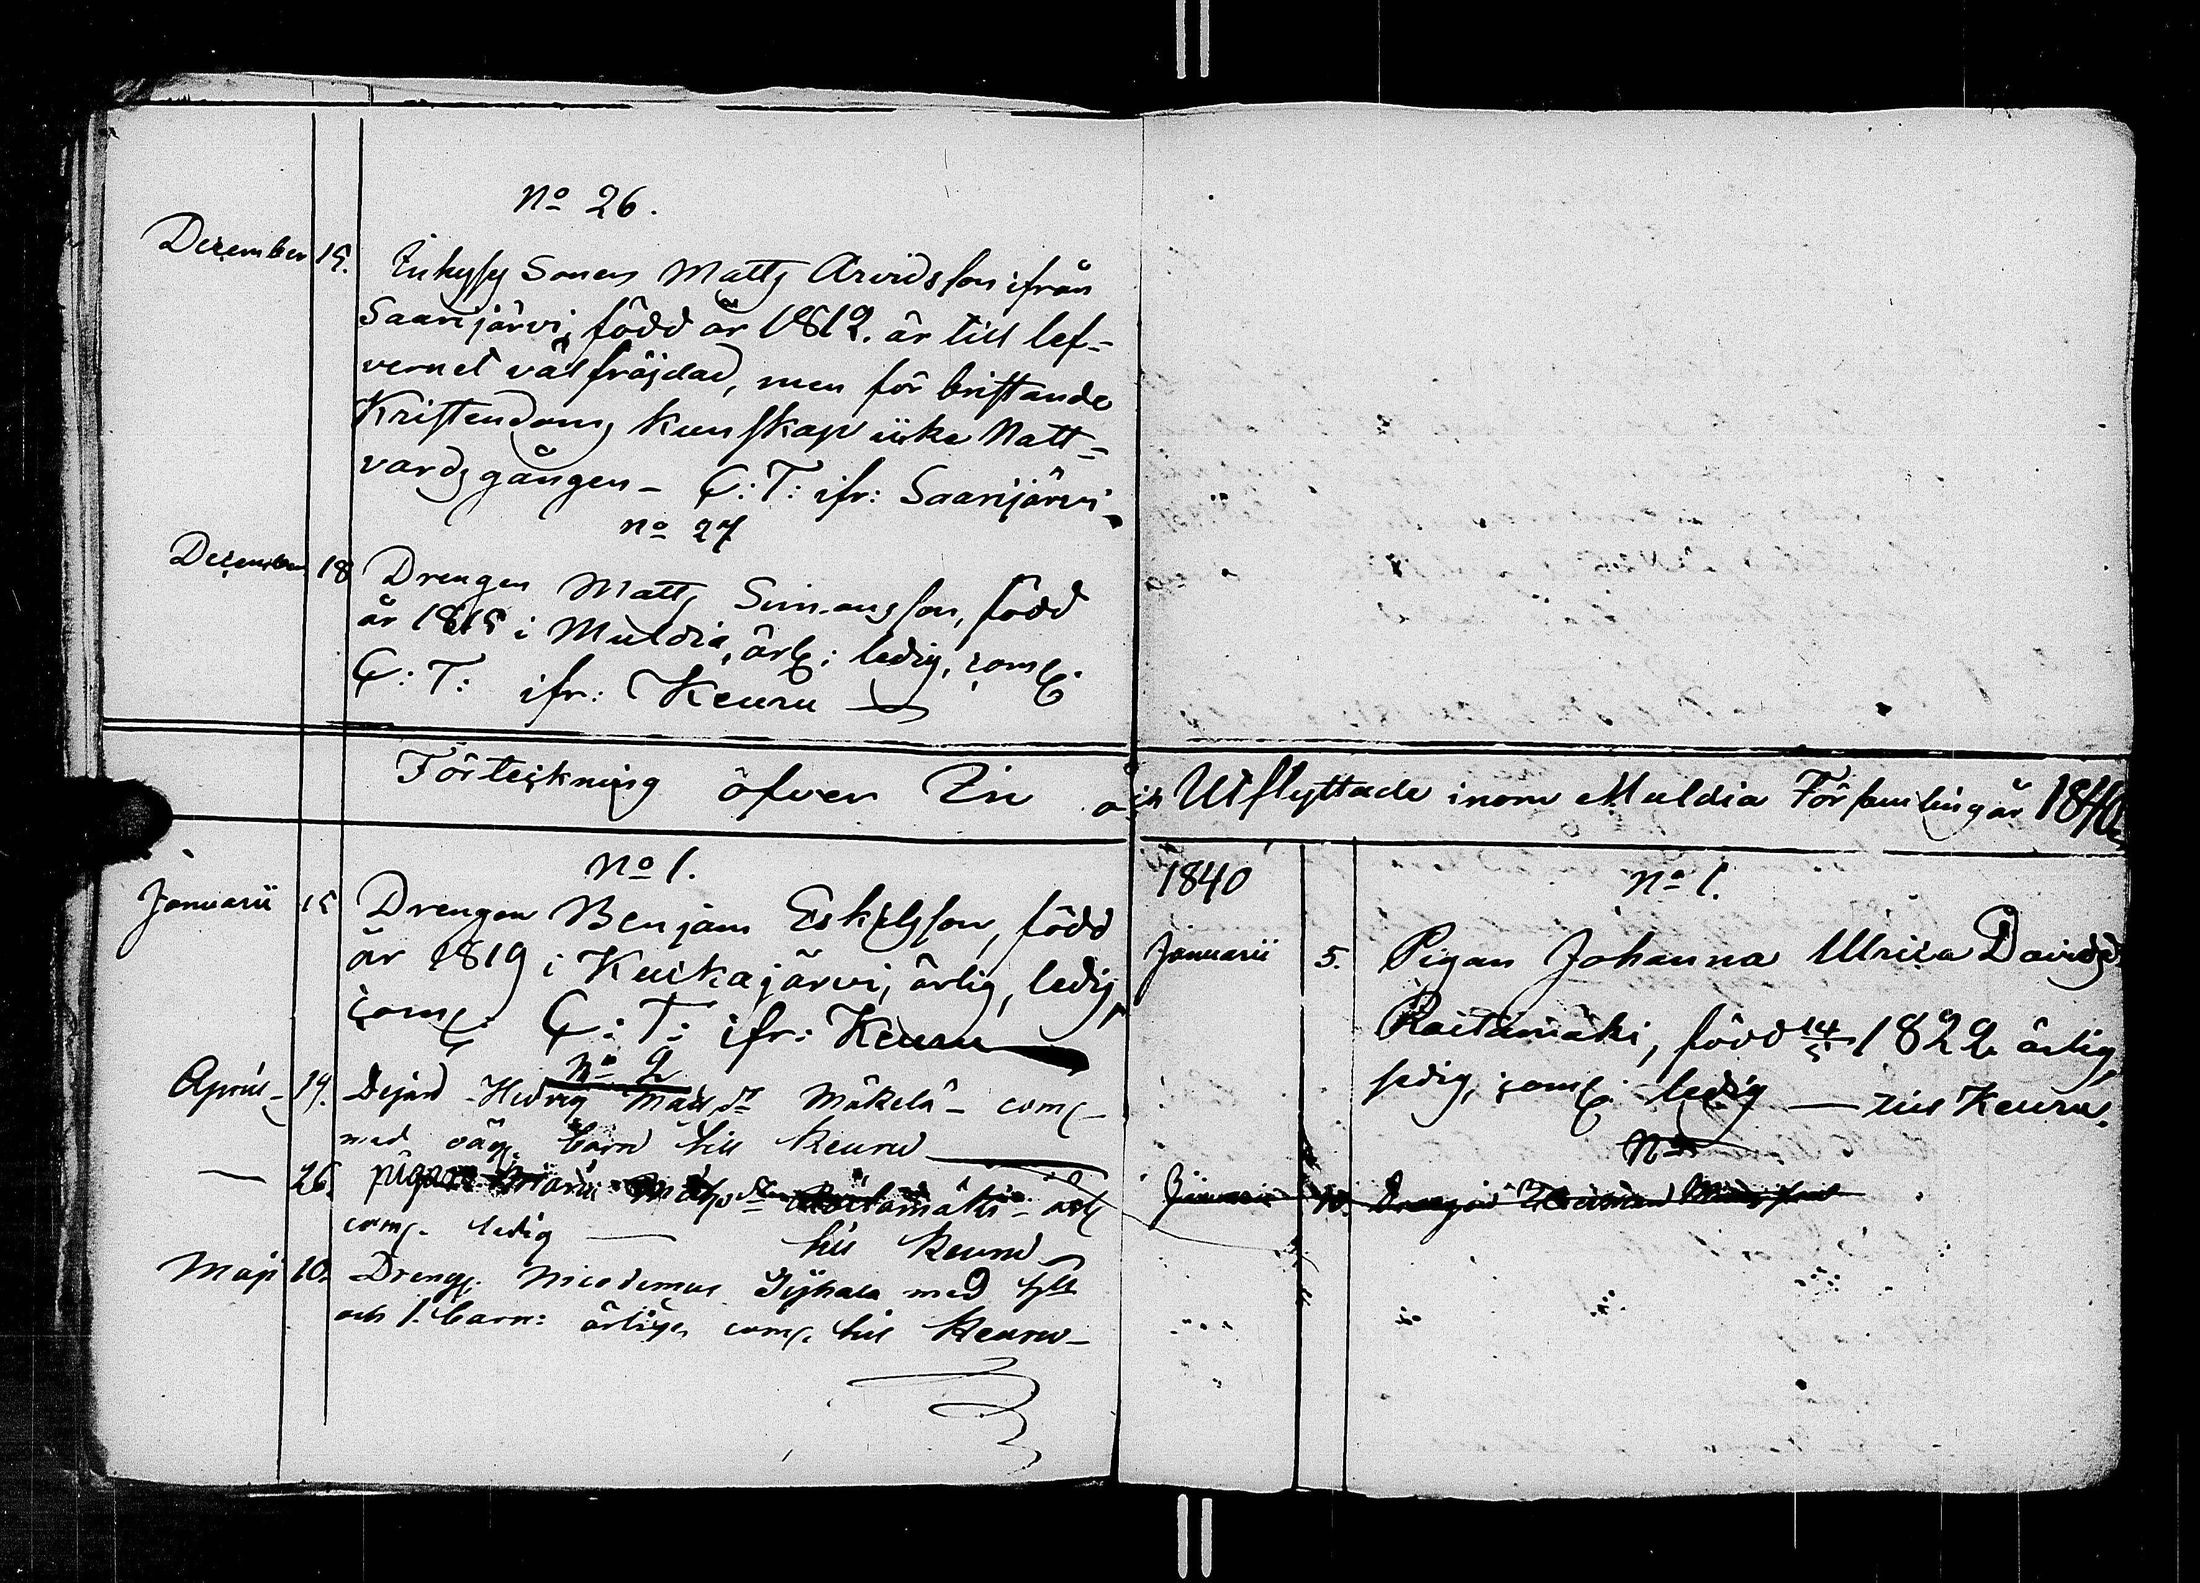 No 26.
December 15. Inhyses Sonen Matts Arvidsson ifrån
Saarijärvi, född år 1812. är till lef-
vernet välfräjdad, men för bristande
Kristendoms kunskap icke Natt-
vards gången – C: T: ifr: Saarijärvi.
No 27
December 18 Drengen Matts Simonsson, född
år 1815 i Muldia, ärl: ledig, com.
C: T: ifr: Keuru
Förteckning öfver In och Utflyttade inom Muldia Församling år 1840.
No 1.
Januarii 15 Drengen Benjam Eskilsson, född
år 1819 i Keikajärvi, ärlig, ledig,
com. C: T: ifr: Keuru
No 2
April 19. Hedvig Mats dr Mäkelä – com
med barn till Keuru
— 26. pigan Maria Matsdr – ärl
com. ledig — till Keuru
Maji 10. Dreng. Nicodemus med
och 1. barn: ärliga com. till Keuru –
1840
No 1.
Januarii 5. Pigan Johanna Ulrica Davidsd
Raitamäki, född 14/5 1822 ärlig,
ledig, com. ledig — till Keuru.
No
Januarii 10. Drengen